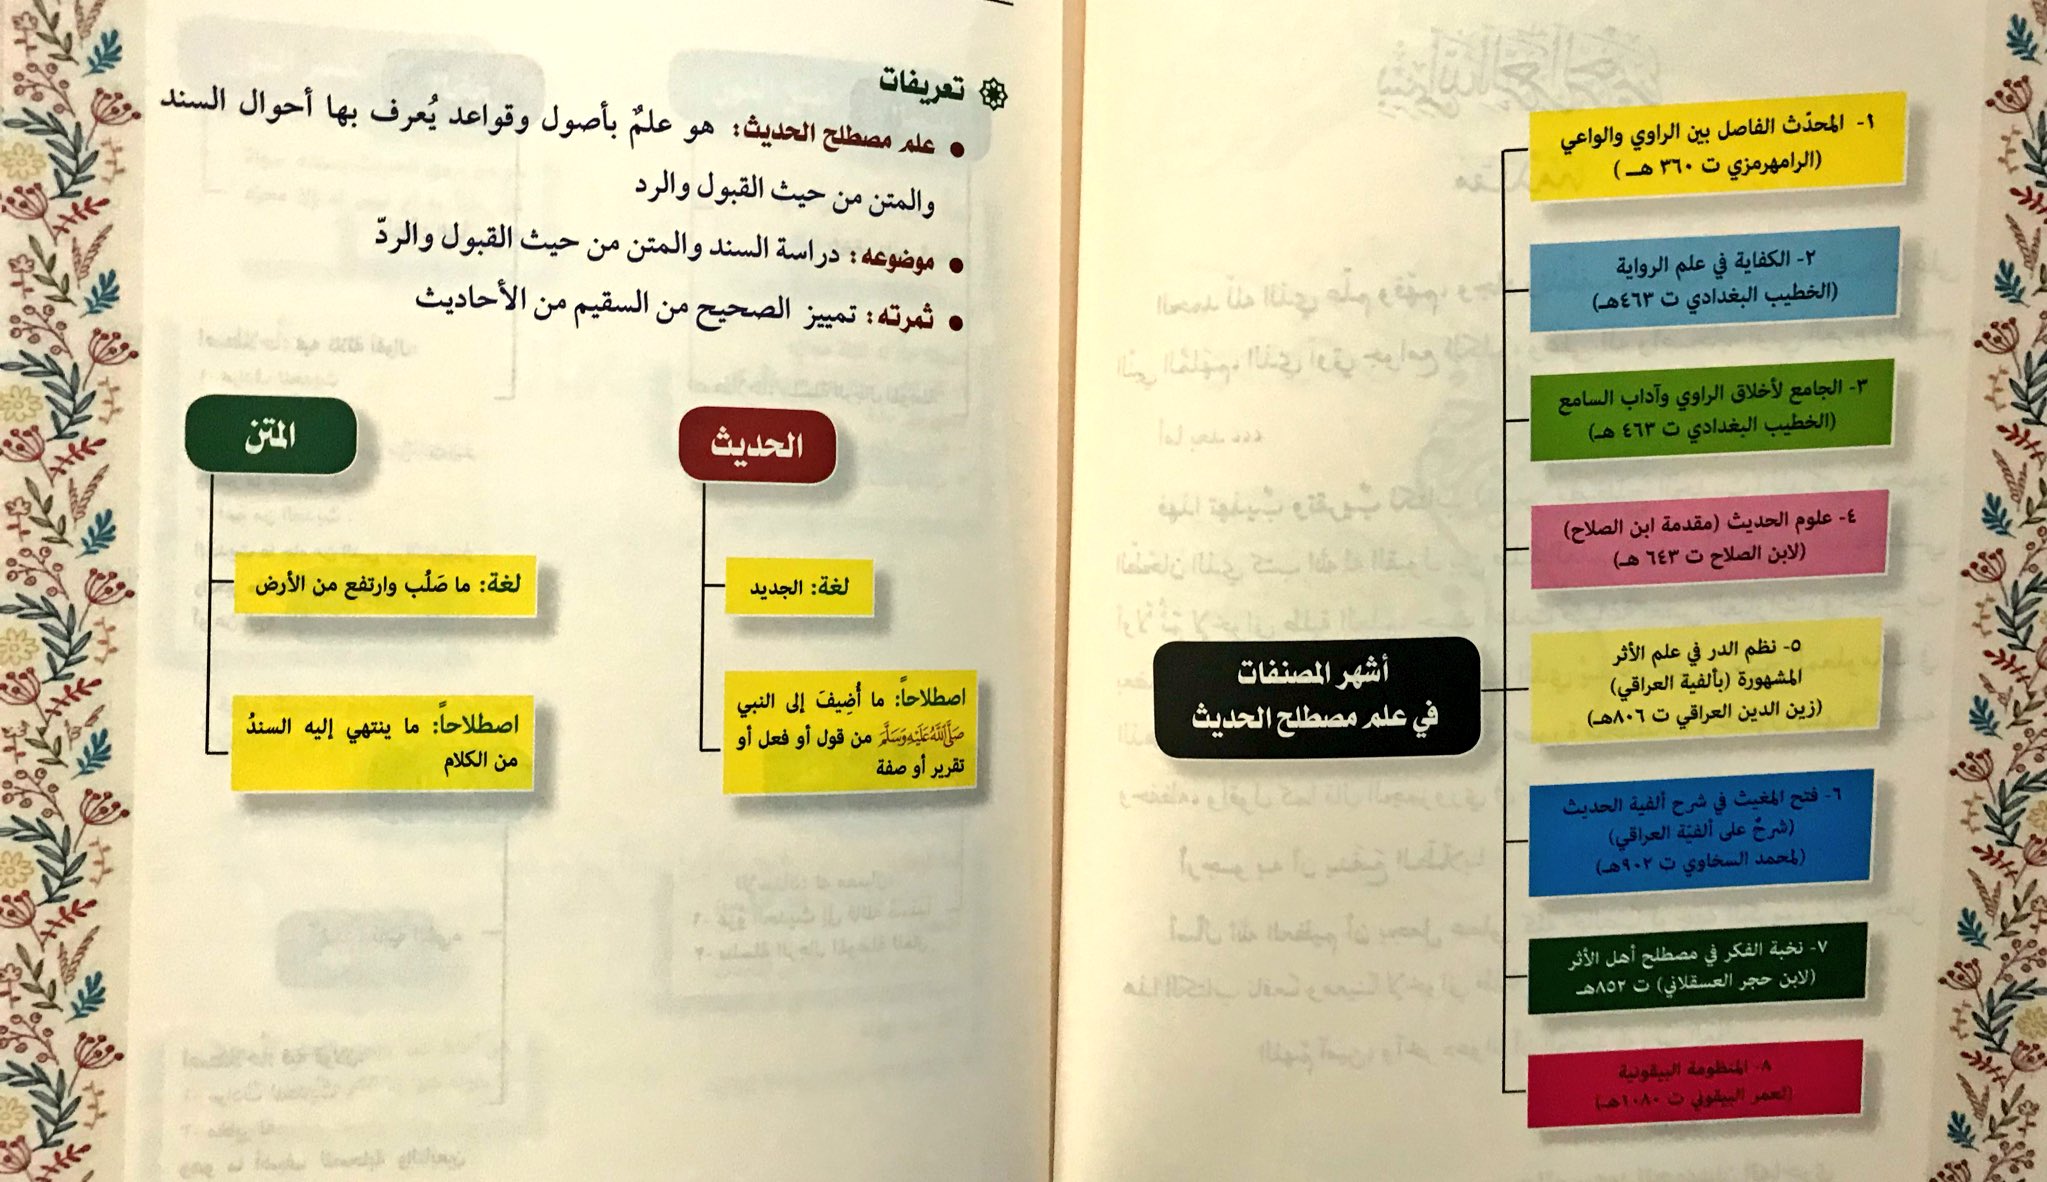 أشهر المصنفات
في علم مصطلح الحديث
١- المحدّث الفاصل بين الراوي والواعي
(الرامهرمزي ت ٣٦٠ هـ)
٢- الكفاية في علم الرواية
(الخطيب البغدادي ت ٤٦٣هـ)
٣- الجامع لأخلاق الراوي وآداب السامع
(الخطيب البغدادي ت ٤٦٣ هـ)
٤- علوم الحديث (مقدمة ابن الصلاح)
(لابن الصلاح ت ٦٤٣ هـ)
٥- نظم الدر في علم الأثر
المشهورة (بألفية العراقي)
(زين الدين العراقي ت ٨٠٦هـ)
٦- فتح المغيث في شرح ألفية الحديث
(شرحٌ على ألفيّة العراقي)
(لمحمد السخاوي ت ٩٠٢هـ)
٧- نخبة الفكر في مصطلح أهل الأثر
(لابن حجر العسقلاني) ت ٨٥٢هـ
٨- المنظومة البيقونية
(لعمر البيقوني ت ١٠٨٠هـ)
تعريفات
● علم مصطلح الحديث: هو علمٌ بأصول وقواعد يُعرف بها أحوال السند
والمتن من حيث القبول والرد
● موضوعه: دراسة السند والمتن من حيث القبول والردّ
● ثمرته: تمييز الصحيح من السقيم من الأحاديث
الحديث
لغة: الجديد
اصطلاحاً: ما أُضِيفَ إلى النبي
صَلَّى اللَّهُ عَلَيْهِ وَسَلَّمَ من قول أو فعل أو
تقرير أو صفة
المتن
لغة: ما صَلُب وارتفع من الأرض
اصطلاحاً: ما ينتهي إليه السندُ
من الكلام